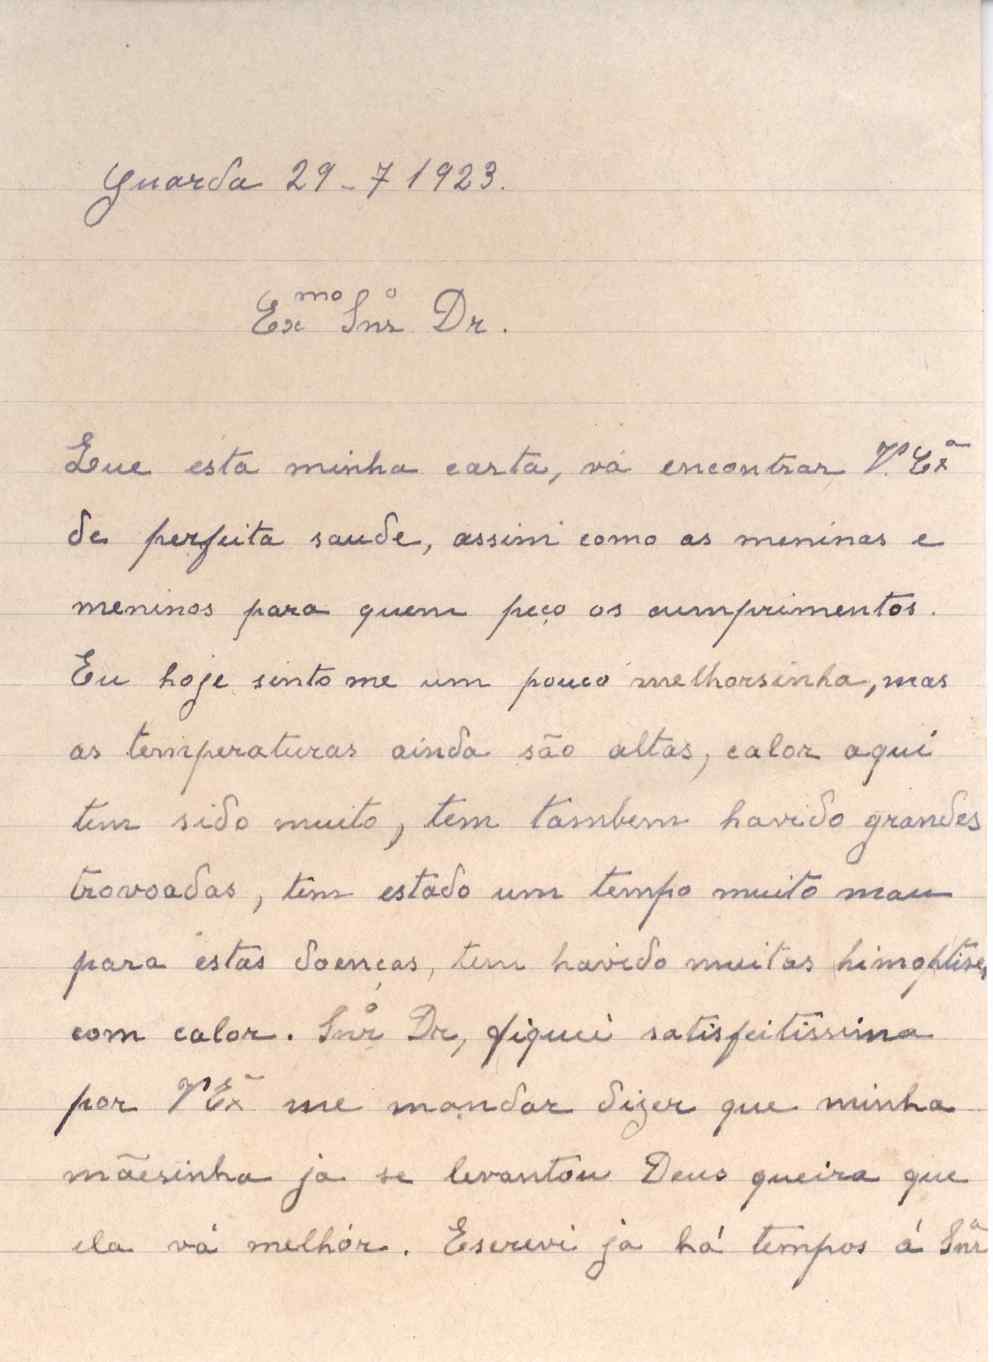 Guarda 29-7 1923.
Exmo Snro Dr.
Que esta minha carta, vá encontrar V. Exª
de perfeita saude, assim como as meninas e
meninos para quem peço os cumprimentos.
Eu hoje sinto me um pouco melhorsinha, mas
as temperaturas ainda são altas, calor aqui
tem sido muito, tem tambem havido grandes
trovoadas, tem estado um tempo muito mau
para estas doenças, tem havido muitas himoptises,
com calor. Snro Dr, fiquei satisfeitissima
por V Exª me mandar dizer que minha
mãesinha ja se levantou Deus queira que
ela vá melhór. Escrevi já há tempos á Snrª